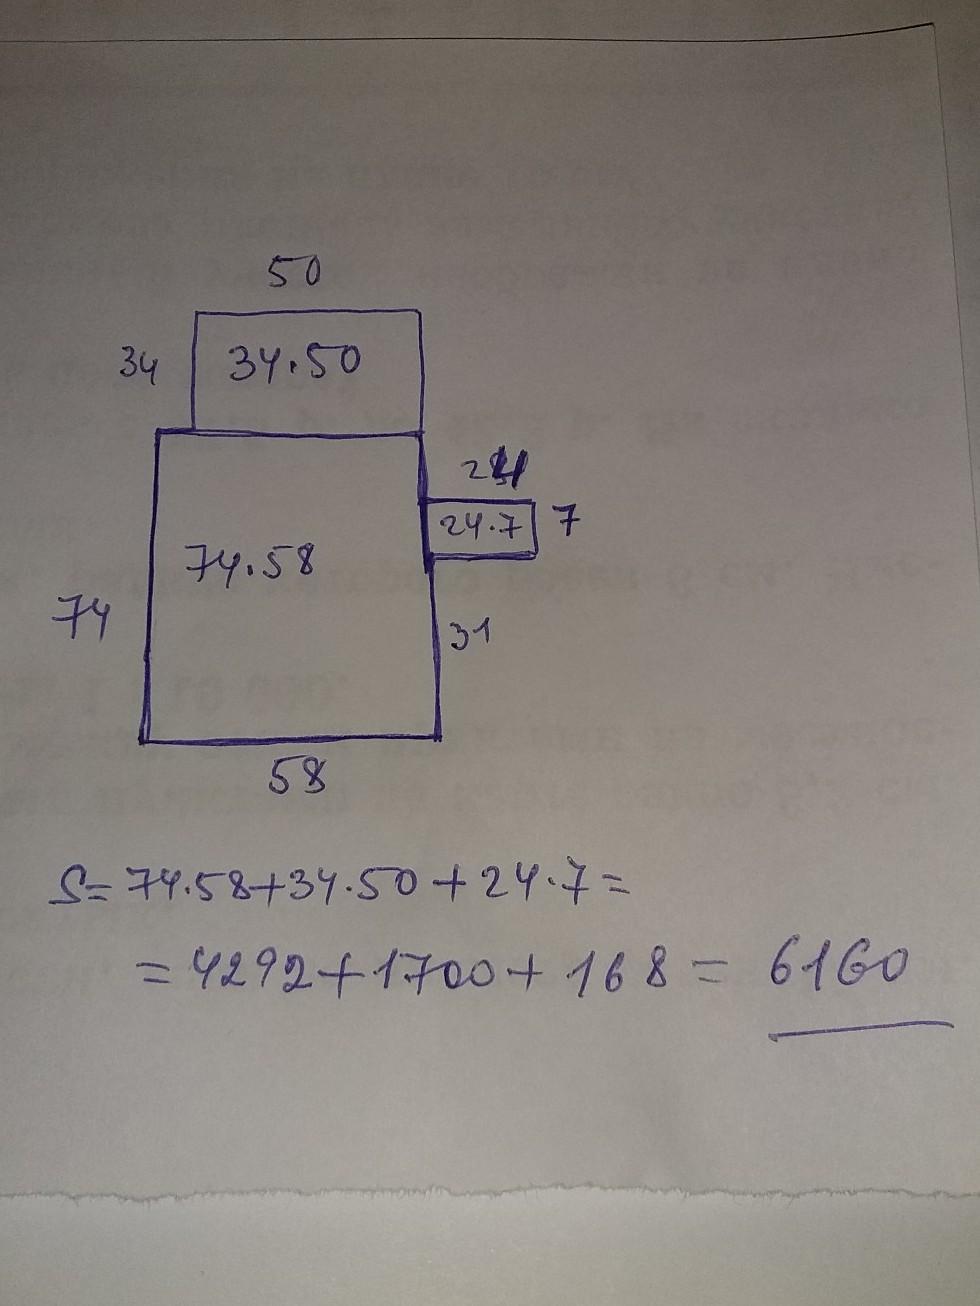 50
34
34.50
24
24.7
7
74.58
74
31
58
S=74.58+34.50+24.7=
=4292+1700+168=6160